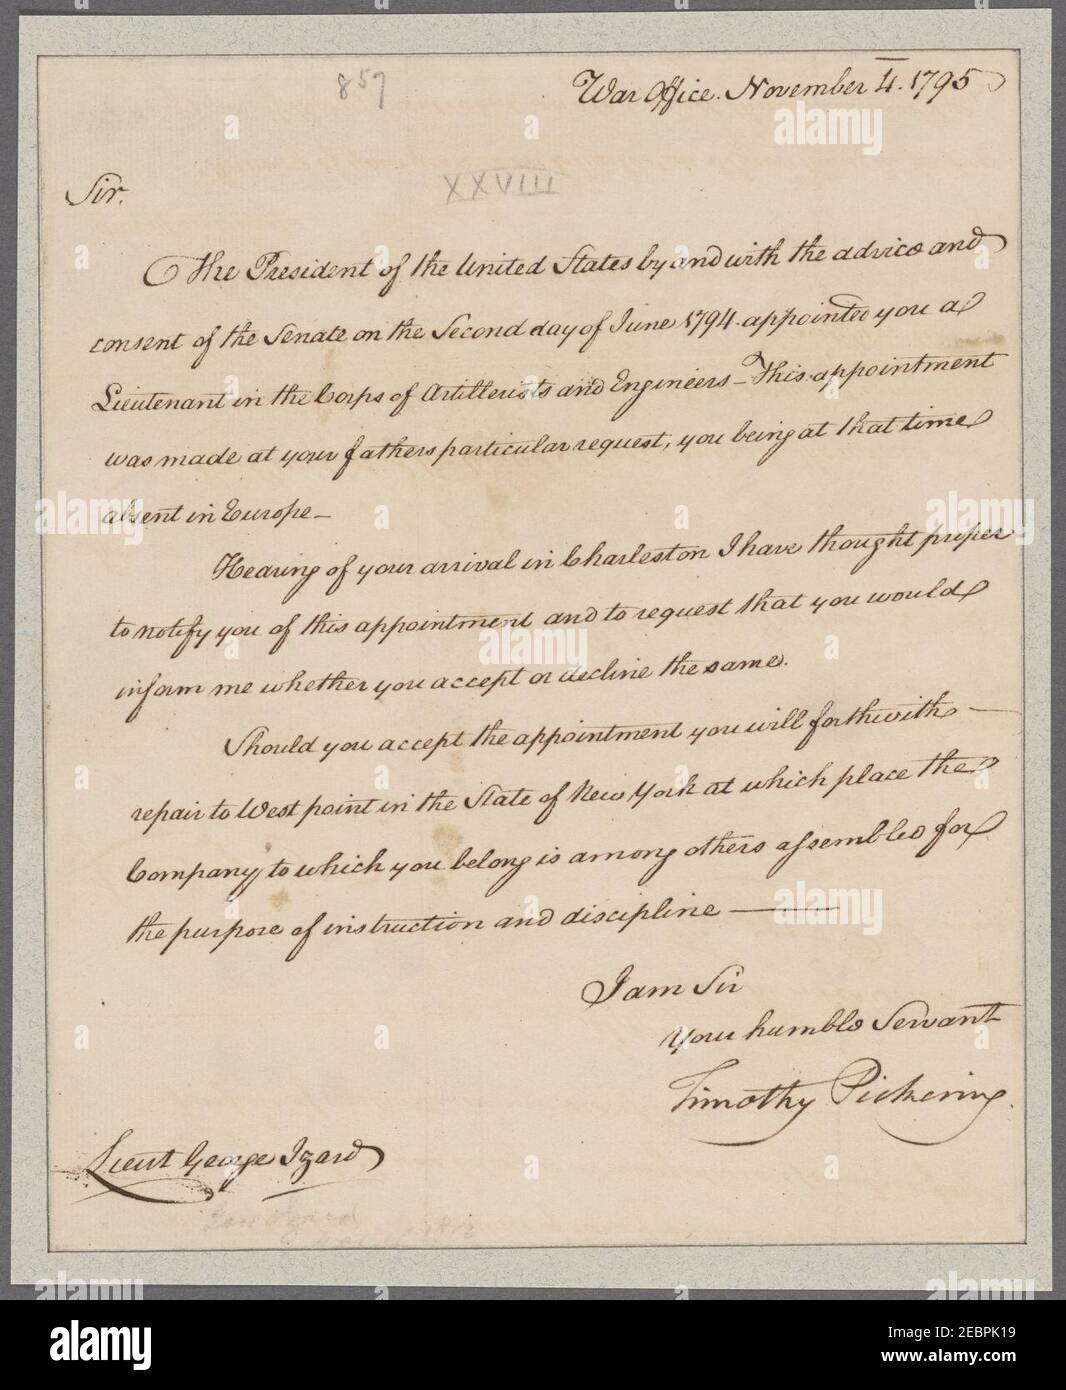 857
War Office. November 4. 1795
XXVIII
Sir,
The President of the United States by and with the advice and
consent of the Senate on the Second day of June 1794. appointed you a
Lieutenant in the Corps of Artillerists and Engineers – This appointment
was made at your fathers particular request, you being at that time
absent in Europe –
Hearing of your arrival in Charleston I have thought proper
to notify you of this appointment and to request that you would
inform me whether you accept or decline the same.
Should you accept the appointment you will forthwith –
repair to West point in the State of New York at which place the
Company to which you belong is among others assembled for
the purpose of instruction and discipline ———
I am Sir
Your humble Servant
Timothy Pickering.
Lieut George Izard
alamy
Image ID: 2EBPK19
www.alamy.com